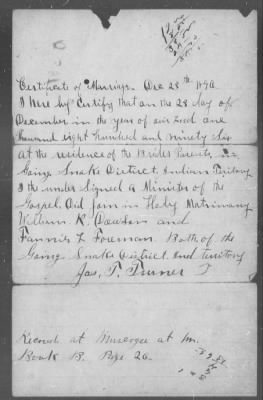 Certificate of Marriage. Dec 28th 1896
I Here by Certify that on the 28 day of
December in the year of our Lord one
thousand eight hundred and ninety Six
at the residence of the Brides Parents, in
Going Snake District Indian Territory
I the under Signed a Minister of the
Gospel, Did Join in Holy Matrimony
William R. Dawson and
Fannie L Foreman. Both of the
Going Snake District Ind territory
Jas, T. Turner
Record at Muscogee at M.
Book B. Page 26.